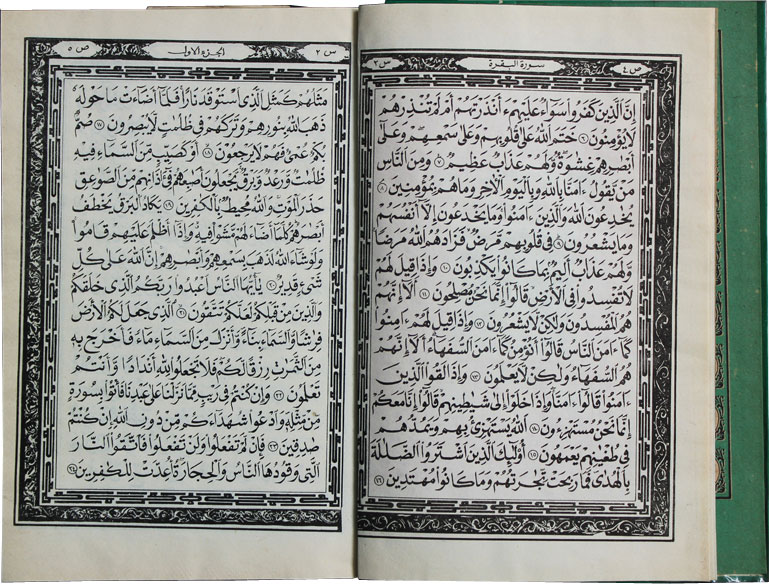 ص ٤ سورة البقرة س ٣
إِنَّ الَّذِينَ كَفَرُوا سَوَآءٌ عَلَيْهِمْ ءَأَنذَرْتَهُمْ أَمْ لَمْ تُنذِرْهُمْ
لَا يُؤْمِنُونَ ٦ خَتَمَ اللَّهُ عَلَىٰ قُلُوبِهِمْ وَعَلَىٰ سَمْعِهِمْ وَعَلَىٰ
أَبْصَٰرِهِمْ غِشَٰوَةٌ وَلَهُمْ عَذَابٌ عَظِيمٌ ٧ وَمِنَ النَّاسِ
مَن يَقُولُ ءَامَنَّا بِاللَّهِ وَبِالْيَوْمِ الْآخِرِ وَمَا هُم بِمُؤْمِنِينَ ٨
يُخَٰدِعُونَ اللَّهَ وَالَّذِينَ ءَامَنُوا وَمَا يَخْدَعُونَ إِلَّا أَنفُسَهُمْ
وَمَا يَشْعُرُونَ ٩ فِي قُلُوبِهِم مَّرَضٌ فَزَادَهُمُ اللَّهُ مَرَضًا
وَلَهُمْ عَذَابٌ أَلِيمٌ بِمَا كَانُوا يَكْذِبُونَ ١٠ وَإِذَا قِيلَ لَهُمْ
لَا تُفْسِدُوا فِي الْأَرْضِ قَالُوا إِنَّمَا نَحْنُ مُصْلِحُونَ ١١ أَلَا إِنَّهُمْ
هُمُ الْمُفْسِدُونَ وَلَٰكِن لَّا يَشْعُرُونَ ١٢ وَإِذَا قِيلَ لَهُمْ ءَامِنُوا
كَمَآ ءَامَنَ النَّاسُ قَالُوا أَنُؤْمِنُ كَمَآ ءَامَنَ السُّفَهَآءُ أَلَا إِنَّهُمْ
هُمُ السُّفَهَآءُ وَلَٰكِن لَّا يَعْلَمُونَ ١٣ وَإِذَا لَقُوا الَّذِينَ
ءَامَنُوا قَالُوا ءَامَنَّا وَإِذَا خَلَوْا إِلَىٰ شَيَٰطِينِهِمْ قَالُوا إِنَّا مَعَكُمْ
إِنَّمَا نَحْنُ مُسْتَهْزِءُونَ ١٤ اللَّهُ يَسْتَهْزِئُ بِهِمْ وَيَمُدُّهُمْ
فِي طُغْيَٰنِهِمْ يَعْمَهُونَ ١٥ أُولَٰئِكَ الَّذِينَ اشْتَرَوُا الضَّلَٰلَةَ
بِالْهُدَىٰ فَمَا رَبِحَت تِّجَٰرَتُهُمْ وَمَا كَانُوا مُهْتَدِينَ ١٦
س ٢ الجزء الاول ص ٥
مَثَلُهُمْ كَمَثَلِ الَّذِي اسْتَوْقَدَ نَارًا فَلَمَّآ أَضَآءَتْ مَا حَوْلَهُ
ذَهَبَ اللَّهُ بِنُورِهِمْ وَتَرَكَهُمْ فِي ظُلُمَٰتٍ لَّا يُبْصِرُونَ ١٧ صُمٌّ
بُكْمٌ عُمْيٌ فَهُمْ لَا يَرْجِعُونَ ١٨ أَوْ كَصَيِّبٍ مِّنَ السَّمَآءِ فِيهِ
ظُلُمَٰتٌ وَرَعْدٌ وَبَرْقٌ يَجْعَلُونَ أَصَٰبِعَهُمْ فِي ءَاذَانِهِم مِّنَ الصَّوَٰعِقِ
حَذَرَ الْمَوْتِ وَاللَّهُ مُحِيطٌ بِالْكَٰفِرِينَ ١٩ يَكَادُ الْبَرْقُ يَخْطَفُ
أَبْصَٰرَهُمْ كُلَّمَآ أَضَآءَ لَهُم مَّشَوْا فِيهِ وَإِذَآ أَظْلَمَ عَلَيْهِمْ قَامُوا
وَلَوْ شَآءَ اللَّهُ لَذَهَبَ بِسَمْعِهِمْ وَأَبْصَٰرِهِمْ إِنَّ اللَّهَ عَلَىٰ كُلِّ
شَيْءٍ قَدِيرٌ ٢٠ يَٰٓأَيُّهَا النَّاسُ اعْبُدُوا رَبَّكُمُ الَّذِي خَلَقَكُمْ
وَالَّذِينَ مِن قَبْلِكُمْ لَعَلَّكُمْ تَتَّقُونَ ٢١ الَّذِي جَعَلَ لَكُمُ الْأَرْضَ
فِرَٰشًا وَالسَّمَآءَ بِنَآءً وَأَنزَلَ مِنَ السَّمَآءِ مَآءً فَأَخْرَجَ بِهِ
مِنَ الثَّمَرَٰتِ رِزْقًا لَّكُمْ فَلَا تَجْعَلُوا لِلَّهِ أَندَادًا وَأَنتُمْ
تَعْلَمُونَ ٢٢ وَإِن كُنتُمْ فِي رَيْبٍ مِّمَّا نَزَّلْنَا عَلَىٰ عَبْدِنَا فَأْتُوا بِسُورَةٍ
مِّن مِّثْلِهِ وَادْعُوا شُهَدَآءَكُم مِّن دُونِ اللَّهِ إِن كُنتُمْ
صَٰدِقِينَ ٢٣ فَإِن لَّمْ تَفْعَلُوا وَلَن تَفْعَلُوا فَاتَّقُوا النَّارَ
الَّتِي وَقُودُهَا النَّاسُ وَالْحِجَارَةُ أُعِدَّتْ لِلْكَٰفِرِينَ ٢٤